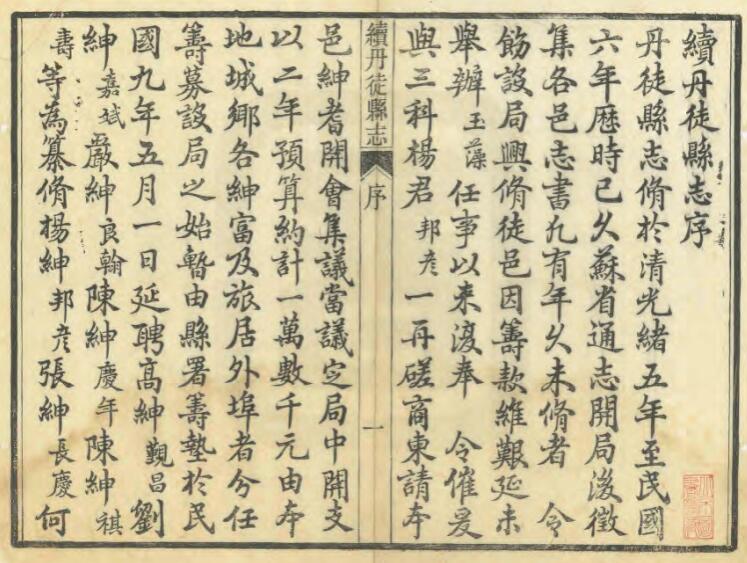 續丹徒縣志序
丹徒縣志脩於清光緒五年至民國
六年歷時已久蘇省通志開局後徵
集各邑志書凡有年久未脩者 令
飭設局興脩徒邑因籌款維艱延未
舉辦玉藻任事以来復奉 令催爰
與三科楊君邦彥一再磋商柬請本
續丹徒縣志 序 一
邑紳耆開會集議當議定局中開支
以二年預算約計一萬數千元由本
地城鄉各紳富及旅居外埠者分任
籌募設局之始暫由縣署籌墊於民
國九年五月一日延聘高紳覲昌劉
紳嘉斌嚴紳良翰陳紳慶年陳紳祺
壽等為纂脩楊紳邦彥張紳長慶何